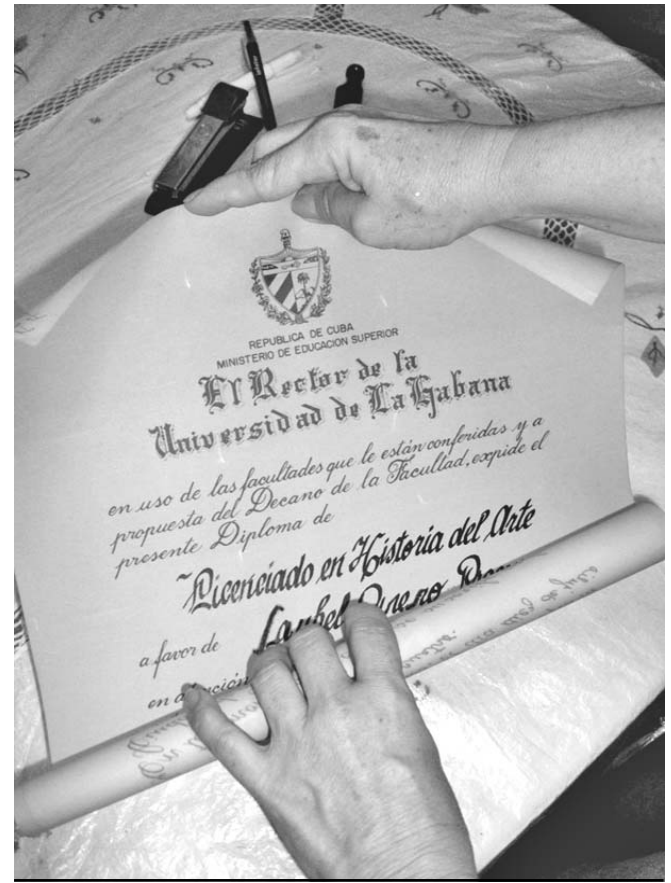 REPUBLICA DE CUBA
MINISTERIO DE EDUCACION SUPERIOR
El Rector de la
Universidad de La Habana
en uso de las facultades que le están conferidas y a
propuesta del Decano de la Facultad, expide el
presente Diploma de
Licenciado en Historia del Arte
a favor de
en